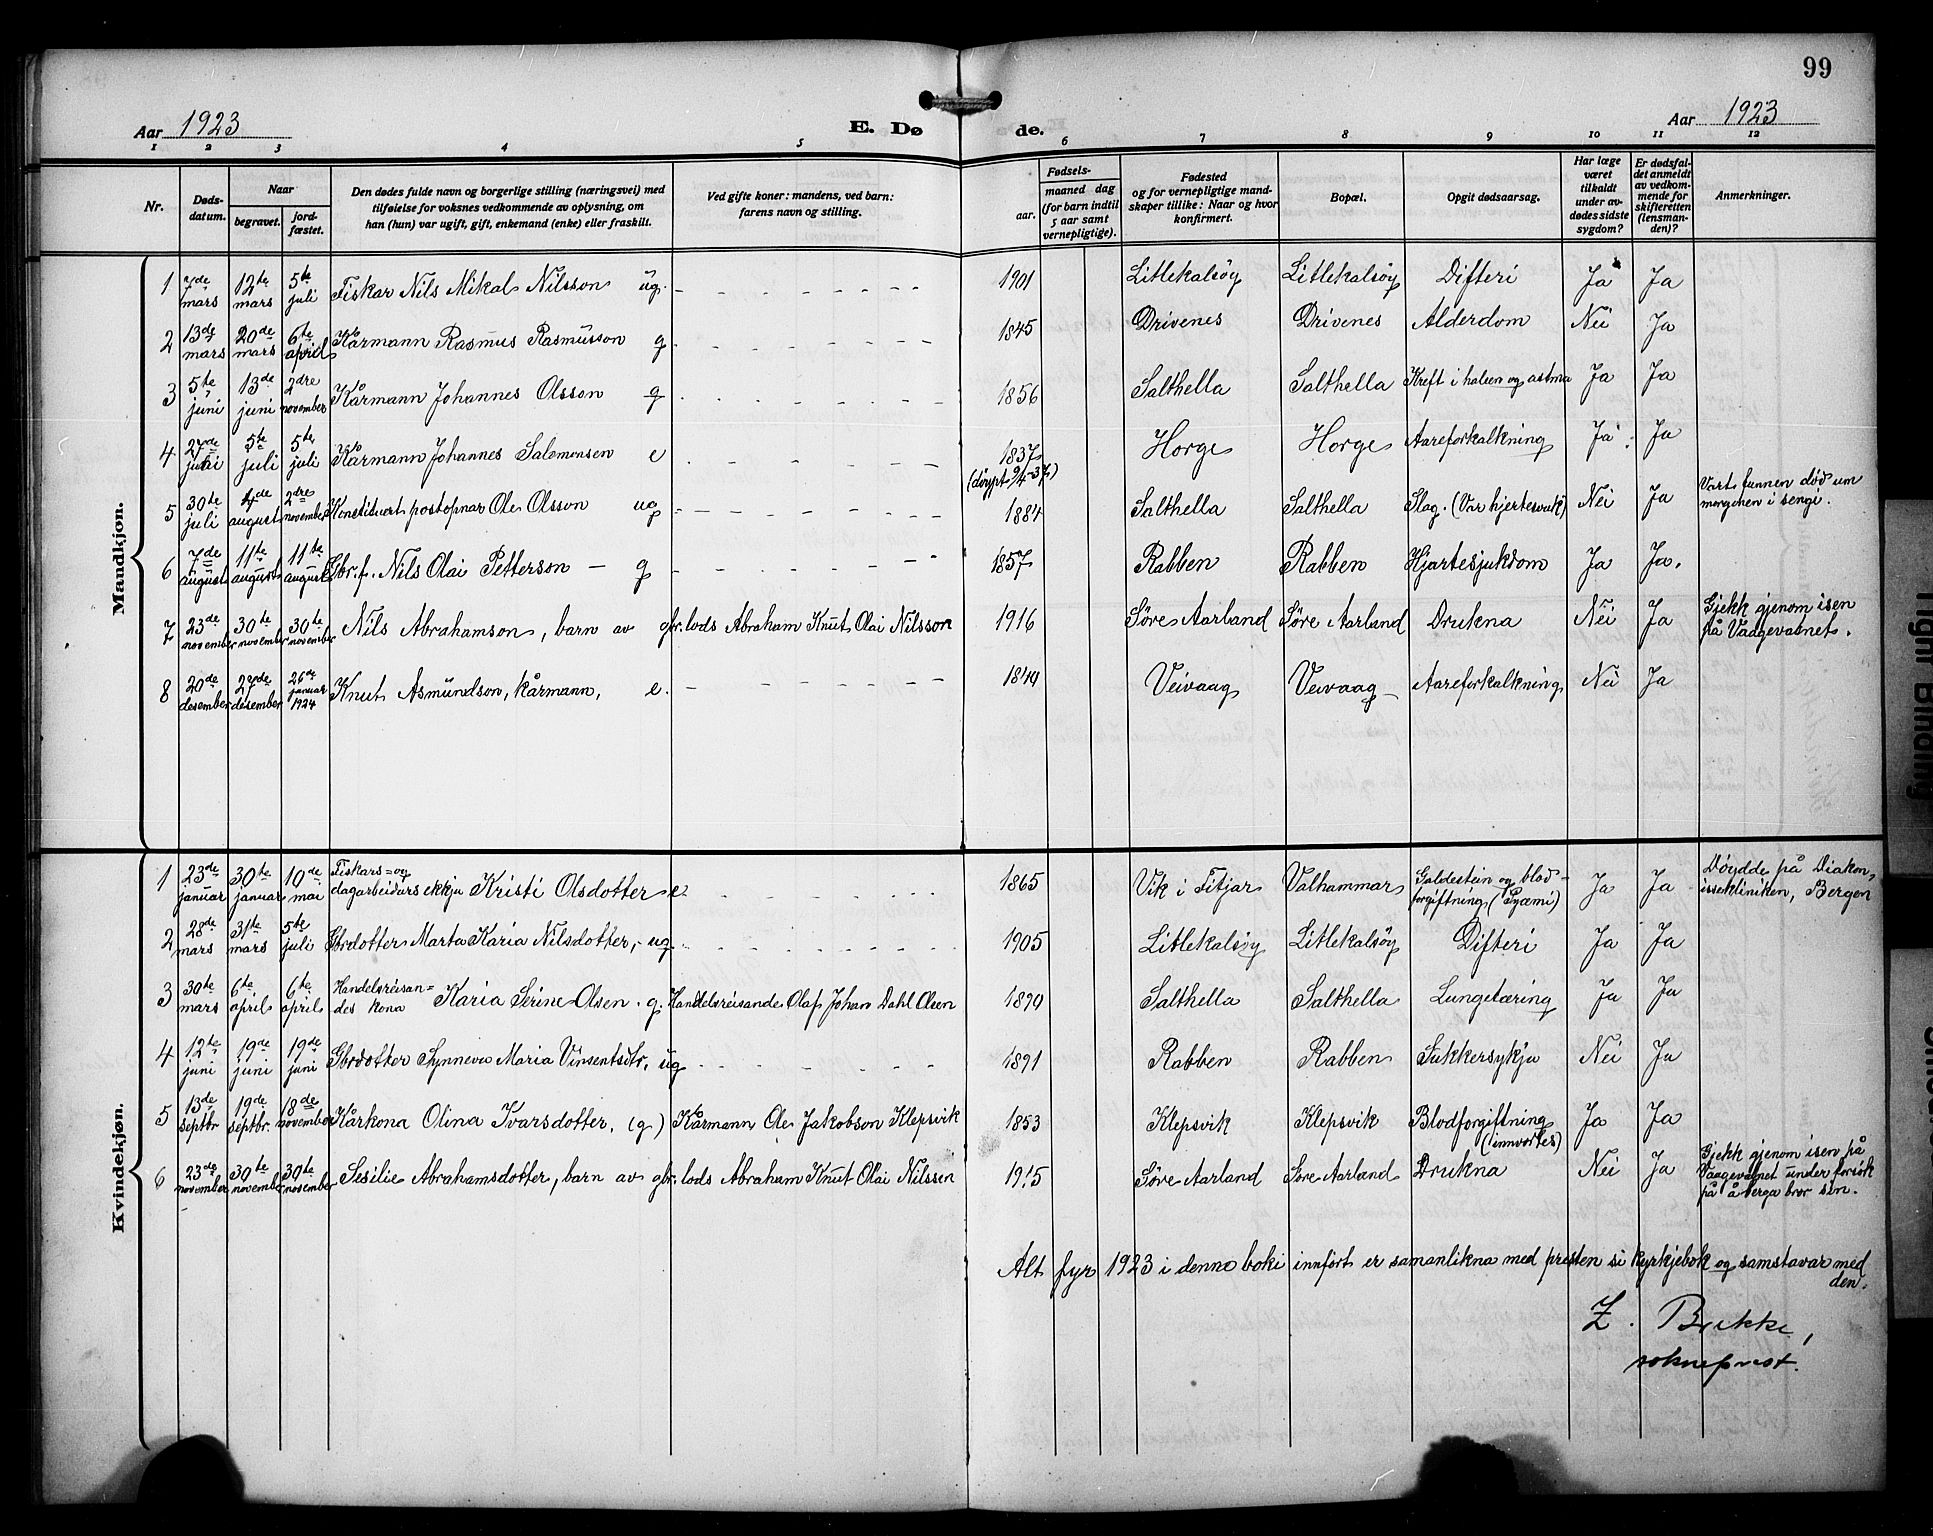 99
Aar 1923
E. Døde.
Aar 1923
1 2 3 4 5 6 7 8 9 10 11 12
Nr.
Døds-datum.
Naar
begravet.
jord-fæstet.
Den dødes fulde navn og borgerlige stilling (næringsvei) med tilføielse for voksnes vedkommende av oplysning, om han (hun) var ugift, gift, enkemand (enke) eller fraskilt.
Ved gifte koner: mandens, ved barn: farens navn og stilling.
Fødsels-
aar.
maaned dag (for barn indtil 5 aar samt vernepligtige).
Fødested og for vernepligtige mand-skaper tillike: Naar og hvor konfirmert.
Bopæl.
Opgit dødsaarsag.
Har læge været tilkaldt under av-dødes sidste sygdom?
Er dødsfal-det anmeldt av vedkom-mende for skifteretten (lensman-den)?
Anmerkninger.
Mandkjøn.
1 7de mars 12te mars 5te juli Fiskar Nils Mikal Nilsson ug. 1901 Litlekalsøy Litlekalsøy Difteri Ja Ja
2 13de mars 20de mars 6te april Kårmann Rasmus Rasmusson g 1845 Drivenes Drivenes Alderdom Nei Ja
3 5te juni 13de juni 2dre november Kårmann Johannes Olsson g 1856 Salthella Salthella Kreft i halsen og astma Ja Ja
4 27de juni 5te juli 5te juli Kårmann Johannes Salomonsen e 1837 (døypt 9/4-37) Horge Horge Aareforkalkning Ja Ja
5 30te juli 4de august 2dre november Konstituert postopnar Ole Olsson ug 1884 Salthella Salthella Slag. (Var hjertesvak) Nei Ja Vart funnen død um morgonen i sengi.
6 7de august 11te august 11te august Gbr.f. Nils Olai Petterson — g 1857 Rabben Rabben Hjartesjukdom Ja Ja.
7 23de november 30te november 30te november Nils Abrahamson, barn av gbr. lods Abraham Knut Olai Nilsson 1916 Søre Aarland Søre Aarland Drukna Nei Ja Gjekk gjenom isen på Vaagevatnet.
8 20de desember 27de desember 26de januar 1924 Knut Asmundson, kårmann, e. Veivaag Veivaag Aareforkalkning Nei Ja
Kvindekjøn.
1 23de januar 30te januar 10de mai Fiskars= og dagarbeidars ekkja Kristi Olsdotter e 1865 Vik i Fitjar Valhammar Galdestein og blod-forgiftning (Pyæmi) Ja Ja Døydde på Diakon-issekliniken, Bergen
2 28de mars 31te mars 5te juli Gbrdotter Marta Karia Nilsdotter,- ug. 1905 Litlekalsøy Litlekalsøy Difteri Ja Ja
3 30te mars 6te april 6te april Handelsreisan=des kona Karia Serine Olsen. g. Handelsreisande Olaf Johan Dahl Olsen 1890 Salthella Salthella Lungetæring Ja Ja
4 12te juni 19de juni 19de juni Gbrdotter Synneva Maria Vinsentsdtr. ug 1891 Rabben Rabben Sukkersykja Nei Ja
5 13de septbr 19de septbr. 18de november Kårkona Olina Ivarsdotter, (g) Kårmann Ole Jakobson Klepsvik 1853 Klepsvik Klepsvik Blodforgiftning (innvortes) Ja Ja
6 23de november 30te november 30te november Sesilie Abrahamsdotter, barn av gbr. lods Abraham Knut Olai Nilssen 1915 Søre Aarland Søre Aarland Drukna Nei Ja Gjekk gjenom isen på Vaagevatnet under forsøk på å berga bror sin.
Alt fyr 1923 i denne boki innført er samanlikna med presten si kyrkjebok og samstavar med den.
Z. Brekke,
sokneprest.
Tight Binding